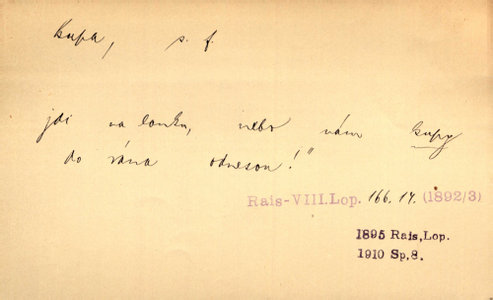 kupa, s. f.
jdi na louku, nebo nám kupy
do rána odnesou!"
Rais-VIII.Lop. 166. 14. (1892/3)
1895 Rais,Lop.
1910 Sp,8.